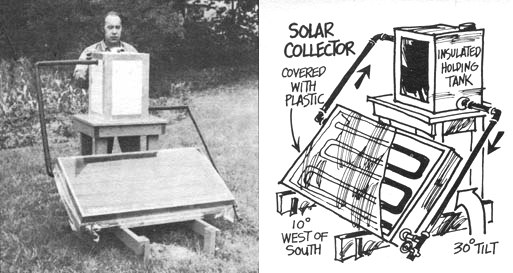 SOLAR
COLLECTOR
COVERED
WITH
PLASTIC
INSULATED
HOLDING
TANK
10°
WEST OF
SOUTH
30° TILT